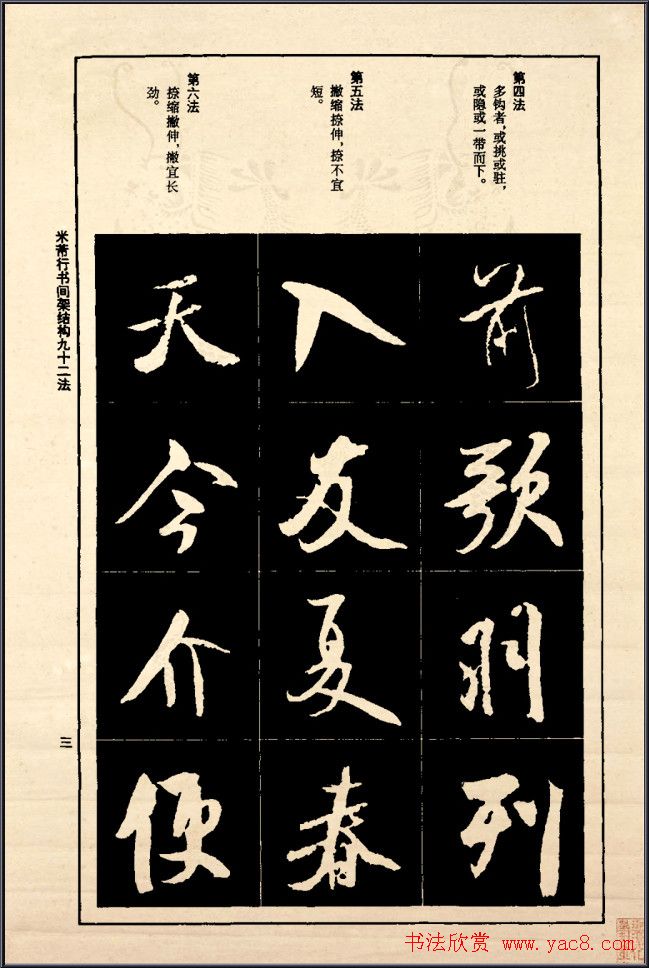 第四法
多钩者,或挑或驻,
或隐或一带而下。
第五法
撇缩捺伸,捺不宜
短。
第六法
捺缩撇伸,撇宜长
劲。
前歌羽列
入友夏春
天今介便
米芾行书间架结构九十二法
三
书法欣赏 www.yac8.com